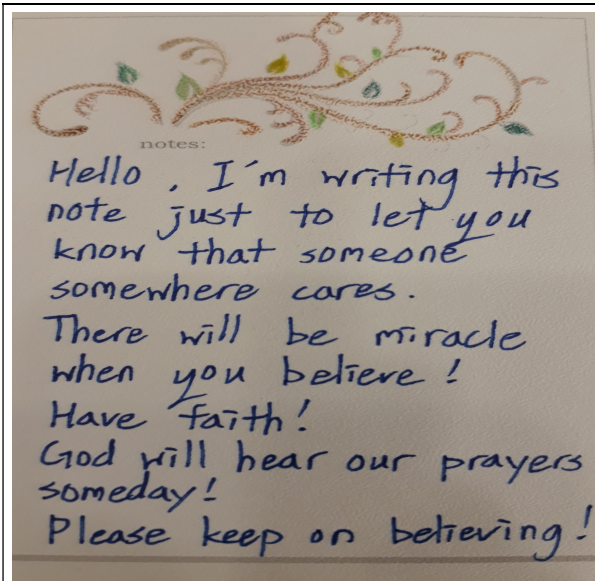 notes:
Hello , I'm writing this
note just to let you
know that someone
somewhere cares.
There will be miracle
when you believe !
Have faith!
God will hear our prayers
someday!
Please keep on believing!